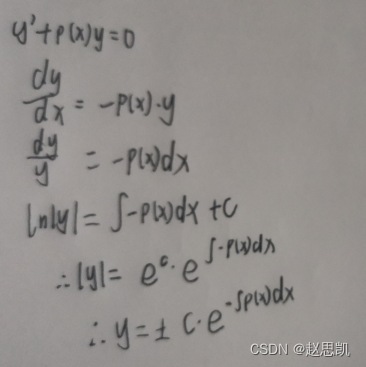 y'+p(x)y=0
dy/dx = -p(x)·y
dy/y = -p(x)dx
ln|y|= ∫-p(x)dx +C
∴|y|= e^c· e^∫-p(x)dx
∴y=± C·e^-∫p(x)dx
CSDN @赵思凯